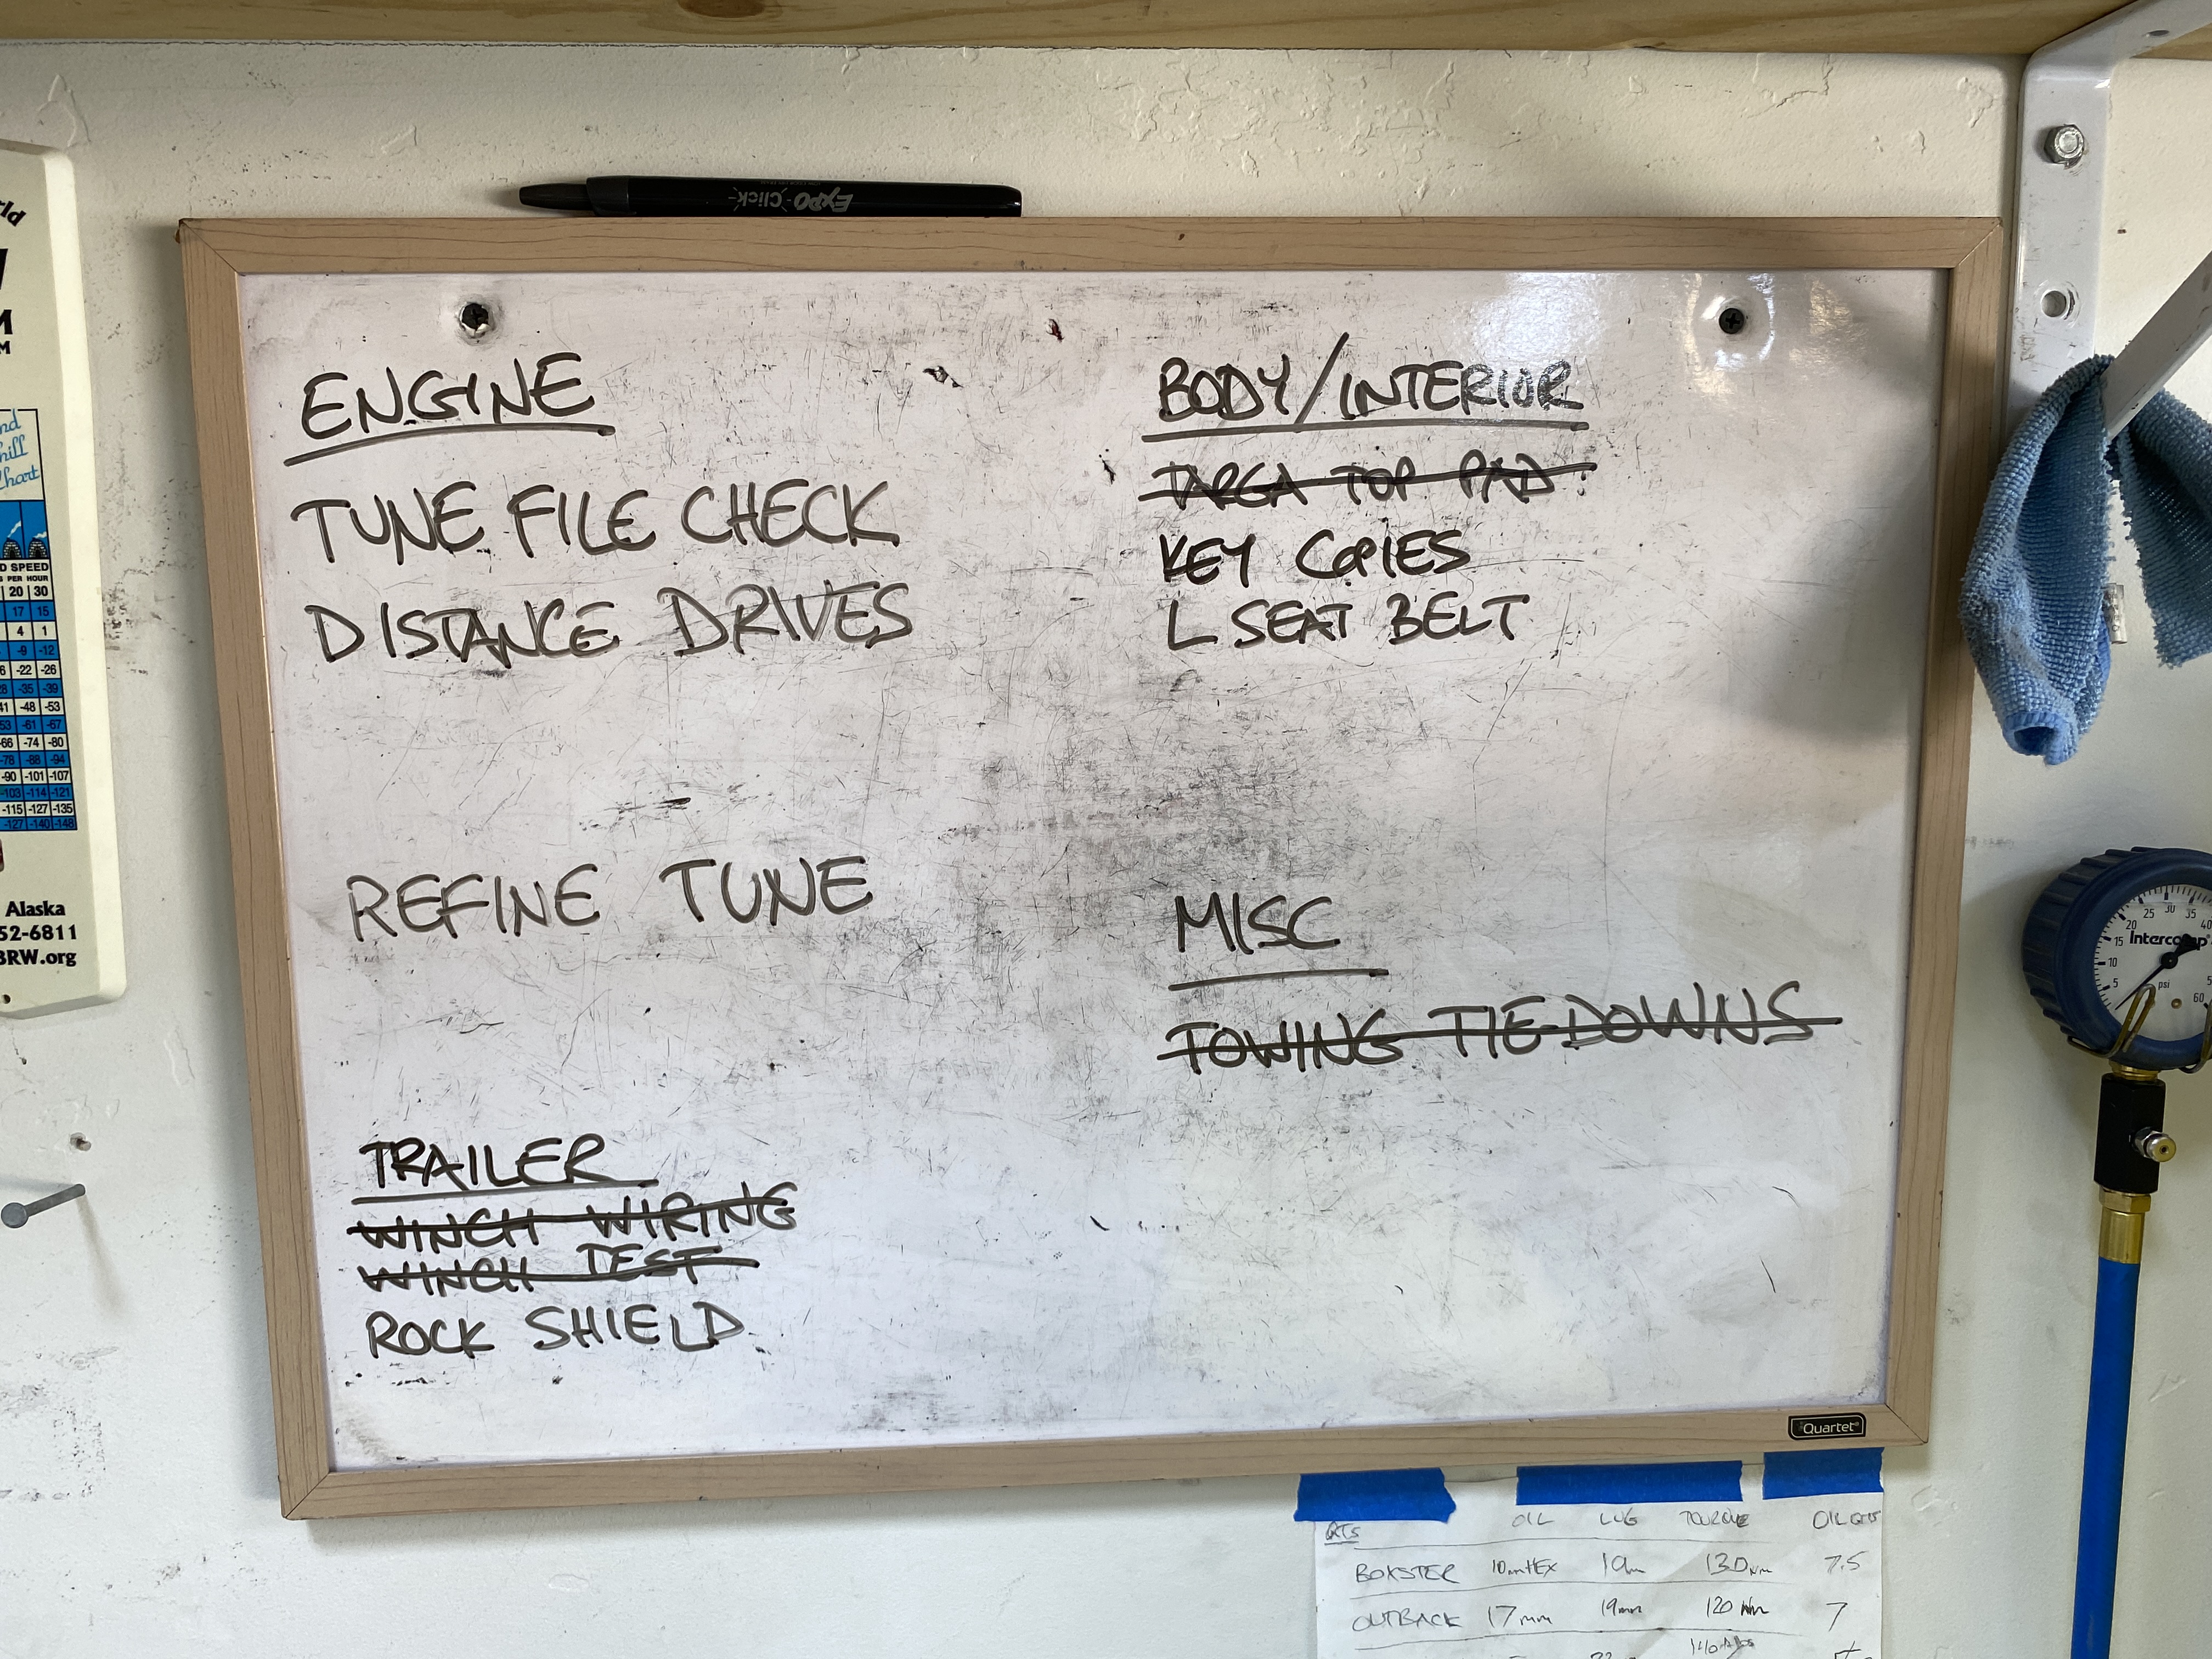 EXPO Click
ENGINE
TUNE FILE CHECK
DISTANCE DRIVES
REFINE TUNE
TRAILER
WINCH WIRING
WINCH TEST
ROCK SHIELD
BODY/INTERIOR
TARGA TOP PAD
KEY COPIES
L SEAT BELT
MISC
TOWING TIE DOWNS
Quartet
OIL LUG TORQUE OIL QTS
BOXSTER 10mm HEX 19mm 130Nm 7.5
OUTBACK 17mm 19mm 120 Nm 7
D SPEED
PER HOUR
20 30
17 15
4 1
-9 -12
-22 -26
-35 -39
-48 -53
-61 -67
-74 -80
-78 -88 -94
-90 -101 -107
-103 -114 -121
-115 -127 -135
-127 -140 -148
Alaska
52-6811
BRW.org
Intercomp
psi
5
10
15
20
25
30
35
40
60